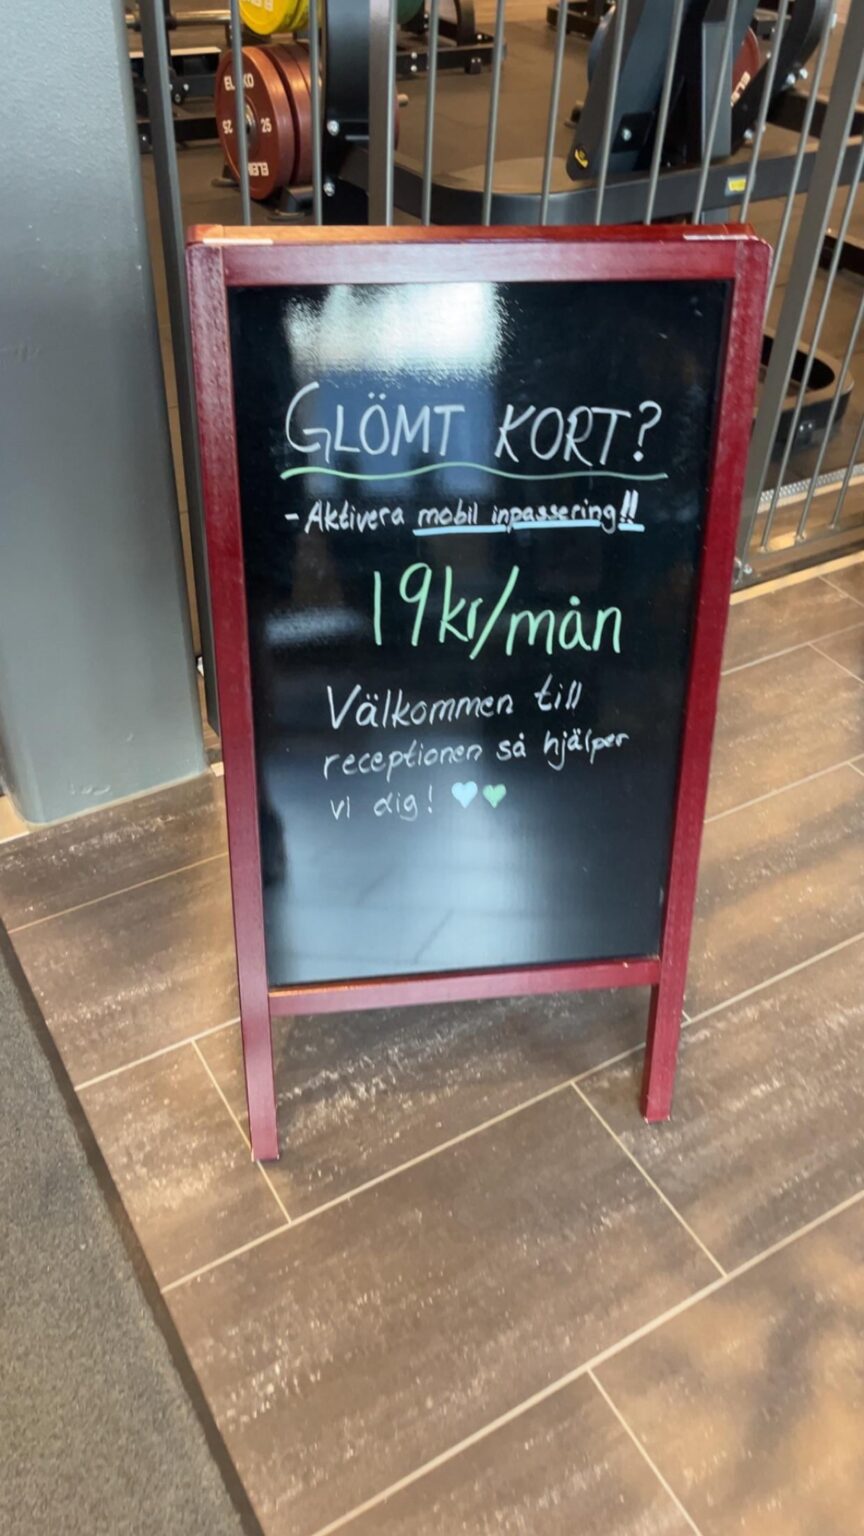 ELEIKO
25
25
GLÖMT KORT?
- Aktivera mobil inpassering!!
19kr/mån
Välkommen till
receptionen så hjälper
vi dig! 🩵💚